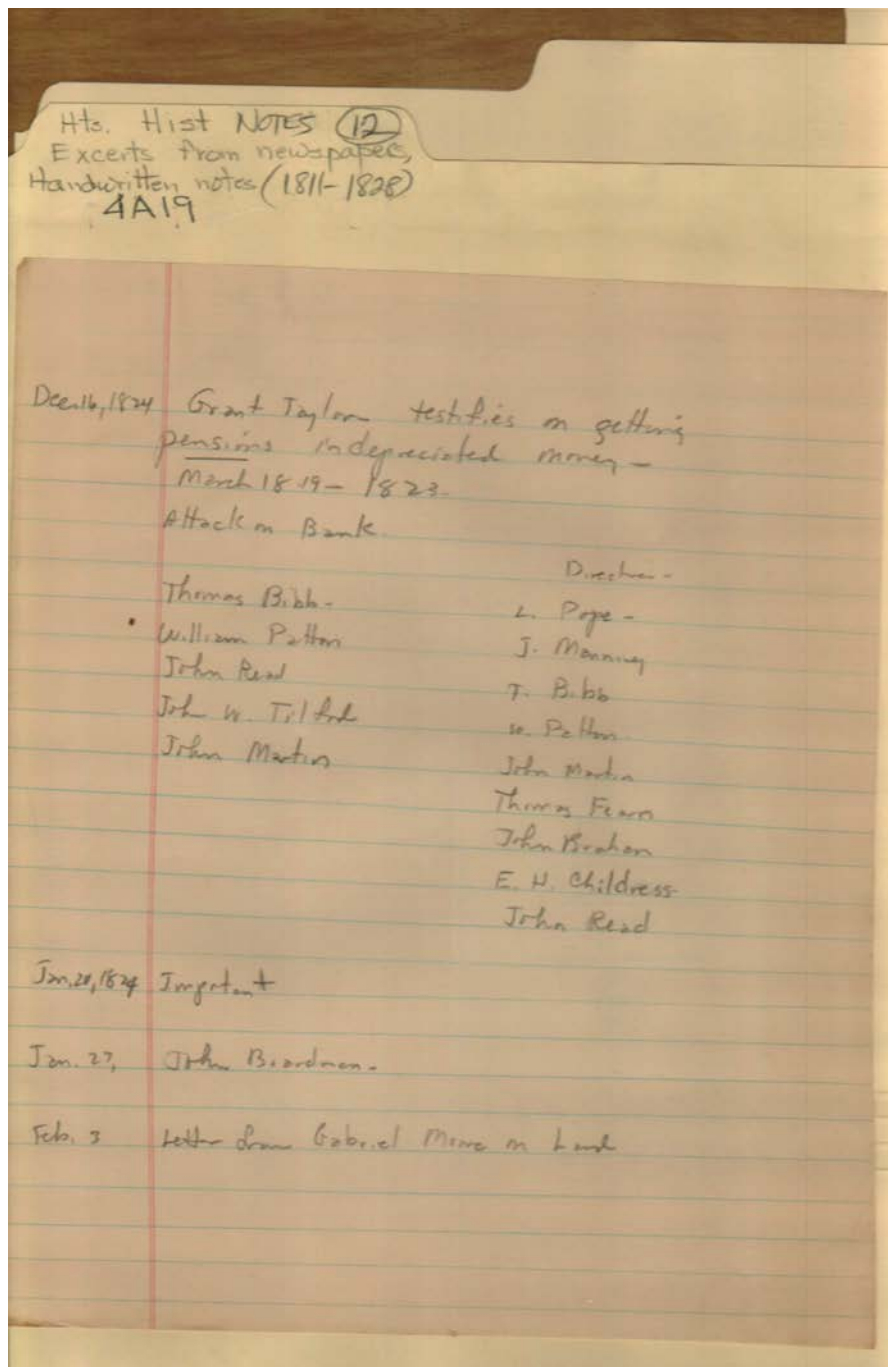 Hts. Hist NOTES (12)
Excerts from newspapers,
Handwritten notes (1811-1828)
4A19
Dec. 16, 1824 Grant Taylor testifies on getting
pensions in depreciated money -
March 1819 - 1823.
Attack on Bank.
Thomas Bibb -
William Patton
John Read
John W. Tilford
John Martin
Directors -
L. Pope -
J. Manning
T. Bibb
W. Patton
John Martin
Thomas Fearn
John Brahan
E. H. Childress
John Read
Jan. 20, 1824 Important
Jan. 27, John Boardman -
Feb. 3 Letter from Gabriel Moore on Land